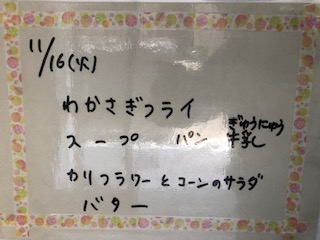 11/16(火)
わかさぎフライ
ぎゅうにゅう
スープ パン 牛乳
カリフラワーとコーンのサラダ
バター